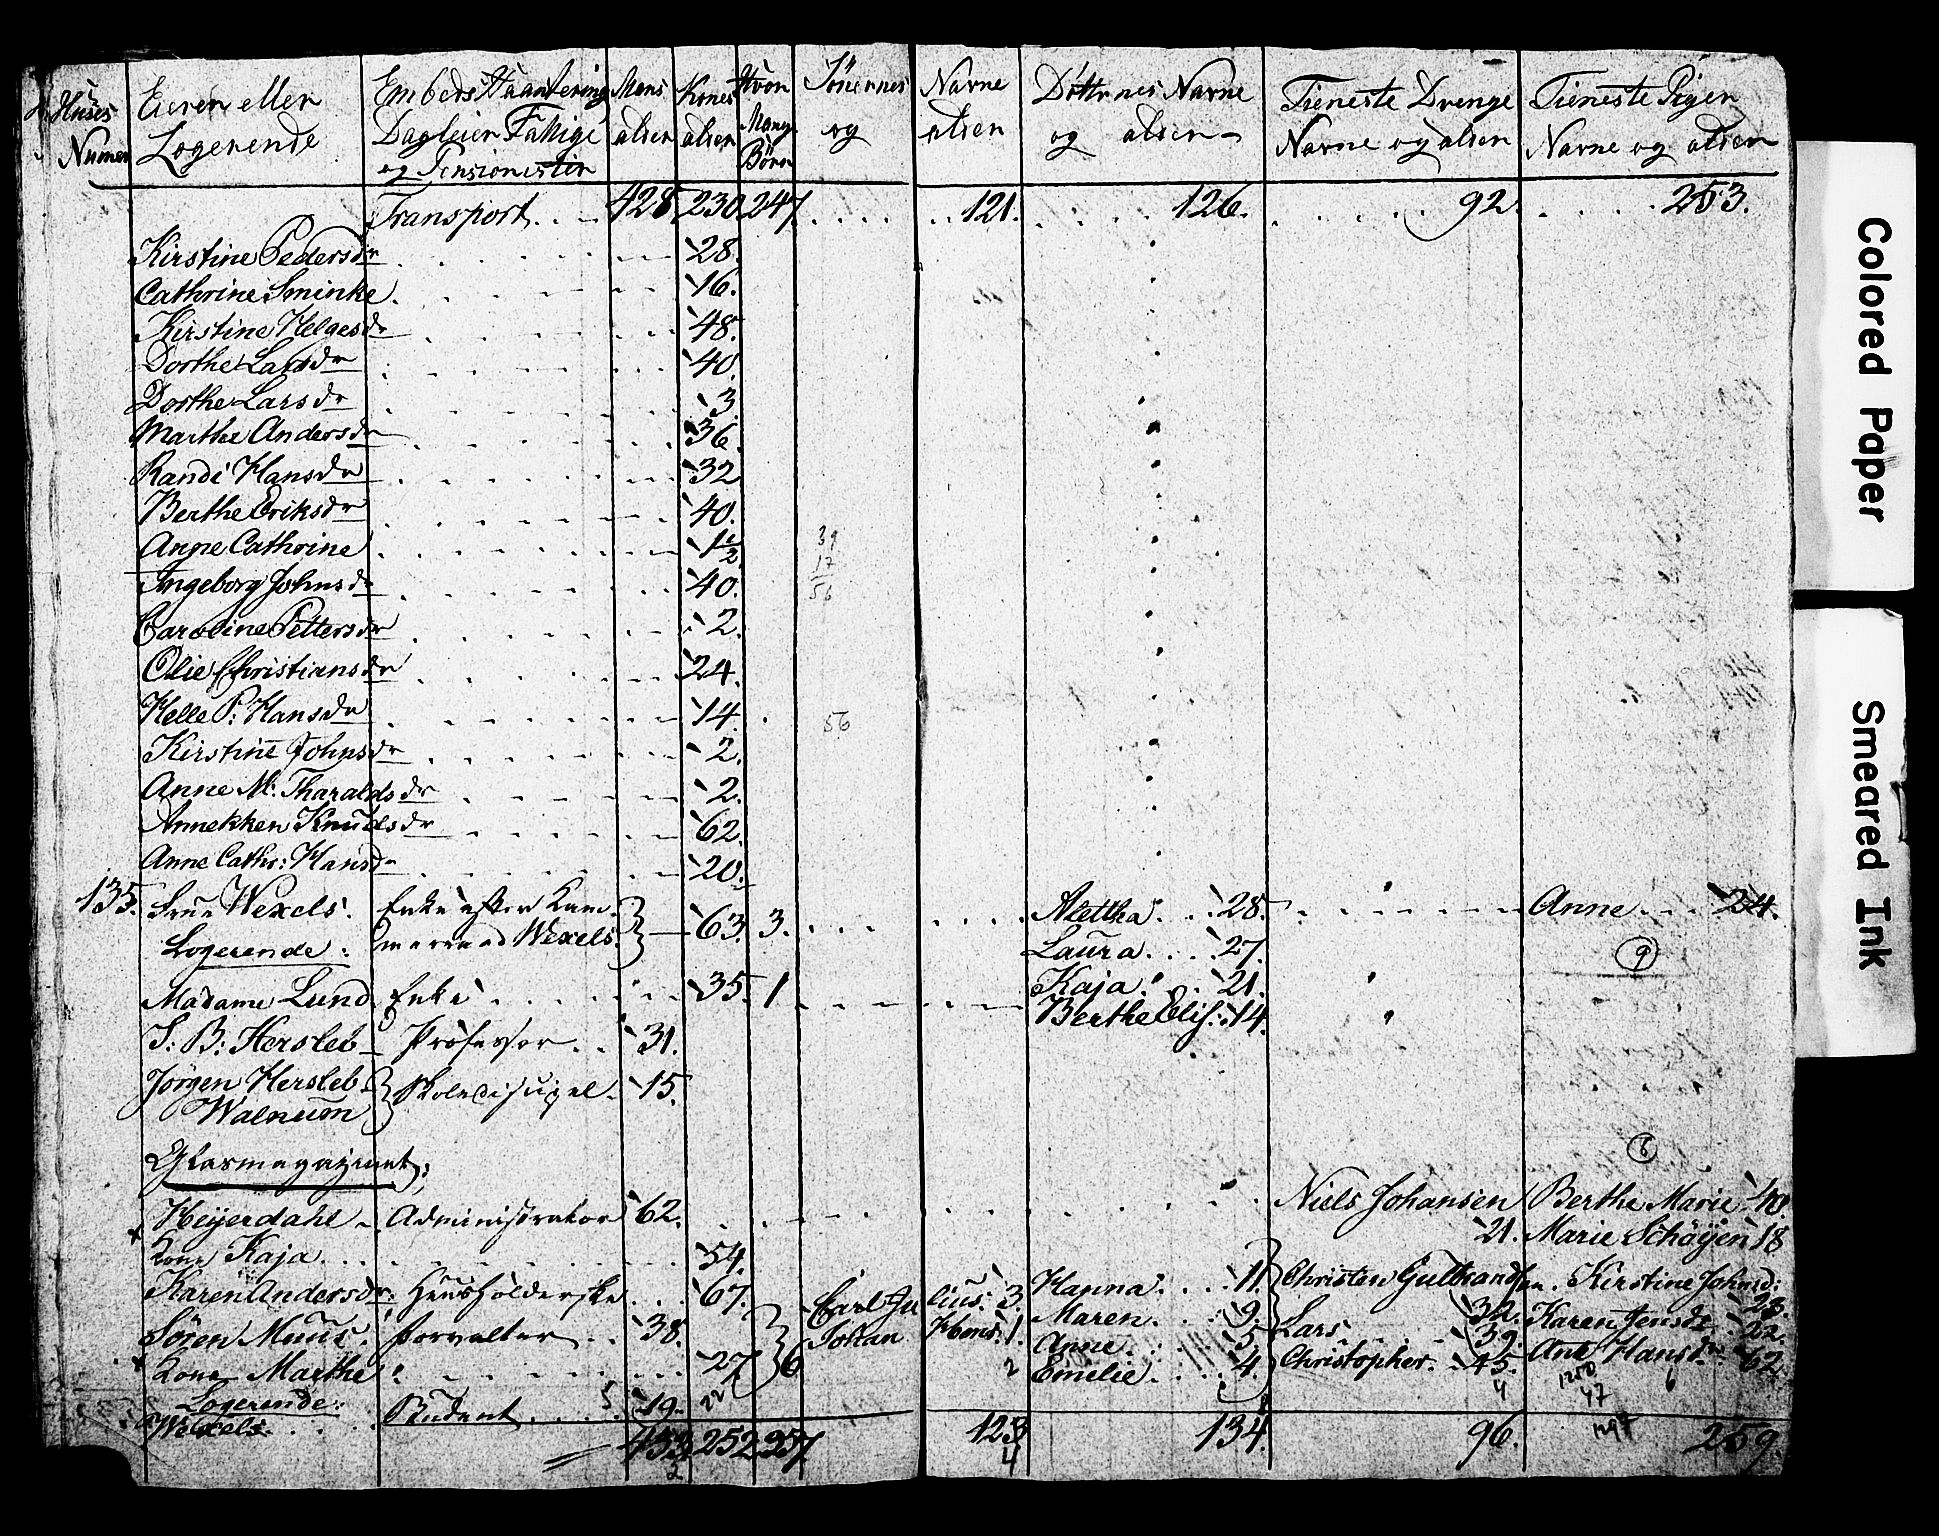 Huses Numer | Eieren eller Logerende | Embeds Haantering Dagleier Fattige og Pensionister | Mans alder | Kones alder | Hvor Mange Børn | Sønernes og | Navne alder | Døttrnes Navne og alder | Tieneste Drenge Navne og alder | Tieneste Piger Navne og alder
Transport . . 428. 230. 247. . . . . . . 121. . . . . 126. . . . . . 92. . . . . . 253.
Kirstine Pedersdr 28.
Cathrine Sminke. 16.
Kirstine Helgesdr 48.
Dorthe Larsdr 40.
Dorthe Larsdr 3
Marthe Andersdr 36
Randi Hansdr 32
Berthe Eriksdr 40.
Anne Cathrine 1 1/2 39
17
Ingeborg Johnsdr 40. 56
Caroline Pettersdr 2.
Olie Christiansdr 24.
Helle P: Hansdr 14. 56
Kirstine Johnsdr 2.
Anne M: Tharaldsdr 2.
Annekken Knudsdr 62.
Anne Cathr: Hansdr 20.
135. Frue Wexels. Enke efter Kam- 63. 3. Alettha. . . 28. Anne . . 24.
Logerende: merraad Wexels. Laura . . . . 27. 9
Madame Lund Enke . . . 35. 1 Kaja . . 21.
Berthe Elis: 14.
S: B: Hersleb Professor . . 31.
Jørgen Hersleb Skoledisipel. 15.
Walnum
Glasmagazinet; 8
Heyerdahl Administrator 62. Niels Johansen 21. Berthe Marie 40.
Kone Kaja . . . 54. Marie Schøyen 18
Karen Andersdr: Huusholderske . . . 67. Carl Julius. 3. Hanna . . . 11. Christen Gulbrandsen. 32. Kirstine Johnsd: 28.
Søren Muus. Forvalter . . 38. Johan Hans: 1. Maren . . . 9. Lars . . . 39. Karen Jensdr 22.
Kone Marthe 27. 6 2 Anne . . . 5. Christopher. 45. Ane Hansdr 62.
Emelie . . . 4. 4 1250 6
Logerende: 47
Wexels. Student . . . 5 19. 22
433 252 257 123 134. 96. 259.
2 4